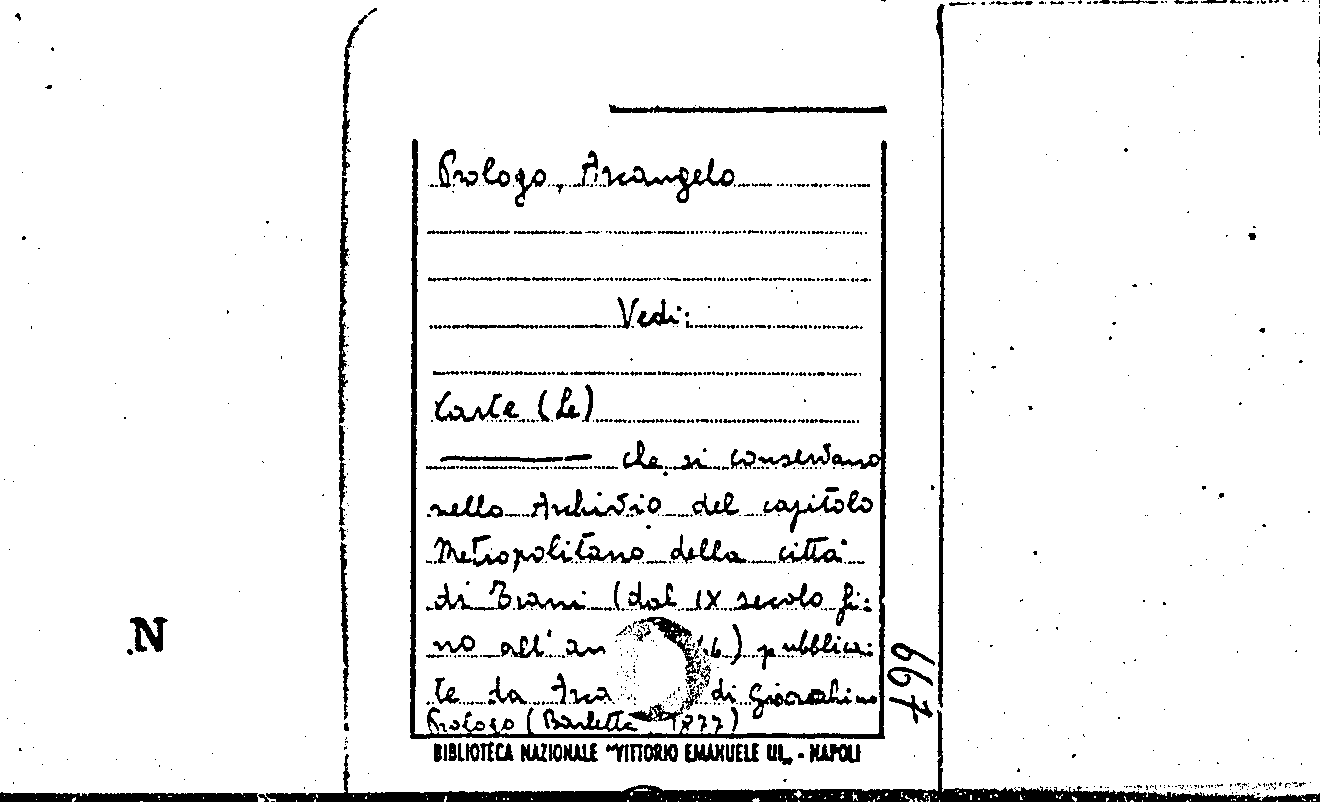 Prologo, Arcangelo
Vedi:
Carte (Le)
che si conservano
nello Archivio del capitolo
Metropolitano della città
di Trani (dal IX secolo fi:
no all'an 6) pubblica:
te da Arca di Gioacchino
Prologo (Barletta 1877)
BIBLIOTECA NAZIONALE "VITTORIO EMANUELE III„ - NAPOLI
N
667